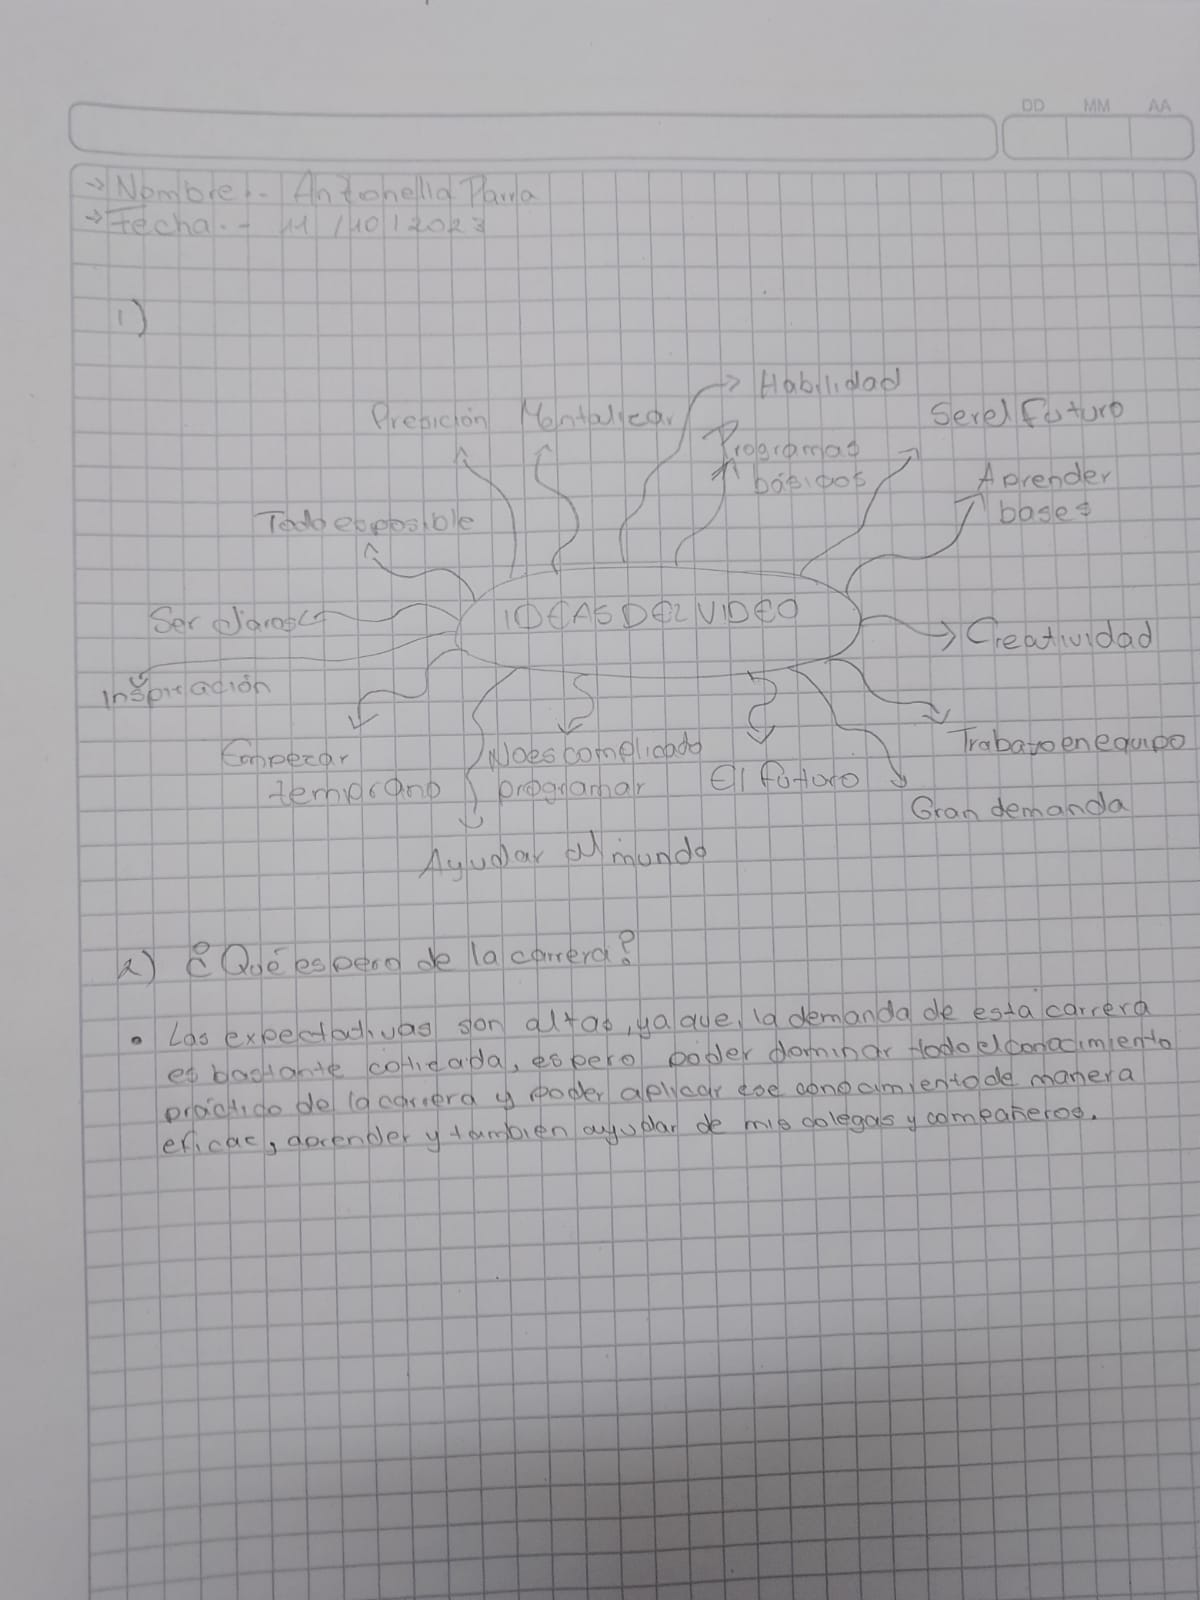 DD MM AA
→ Nombre.- Antonella Parra
→ Fecha.- 11/10/2023
1)
→ Habilidad
Presición Mentalizar
Ser el futuro
Programas
básicos
Aprender
bases
Todo es posible
IDEAS DEL VIDEO
Ser claros
Creatividad
Inspiración
Empezar
temprano
No es complicado
programar
El futuro
Trabajo en equipo
Gran demanda
Ayudar al mundo
2) ¿Qué espero de la carrera?
• Las expectativas son altas, ya que, la demanda de esta carrera
es bastante cotizada, espero poder dominar todo el conocimiento
práctico de la carrera y poder aplicar ese conocimiento de manera
eficaz, aprender y tambien ayudar de mis colegas y compañeros.